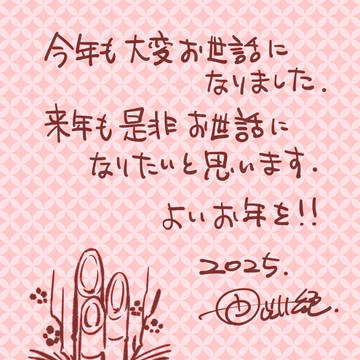 今年も大変お世話に
なりました.
来年も是非お世話に
なりたいと思います.
よいお年を!!
2025.